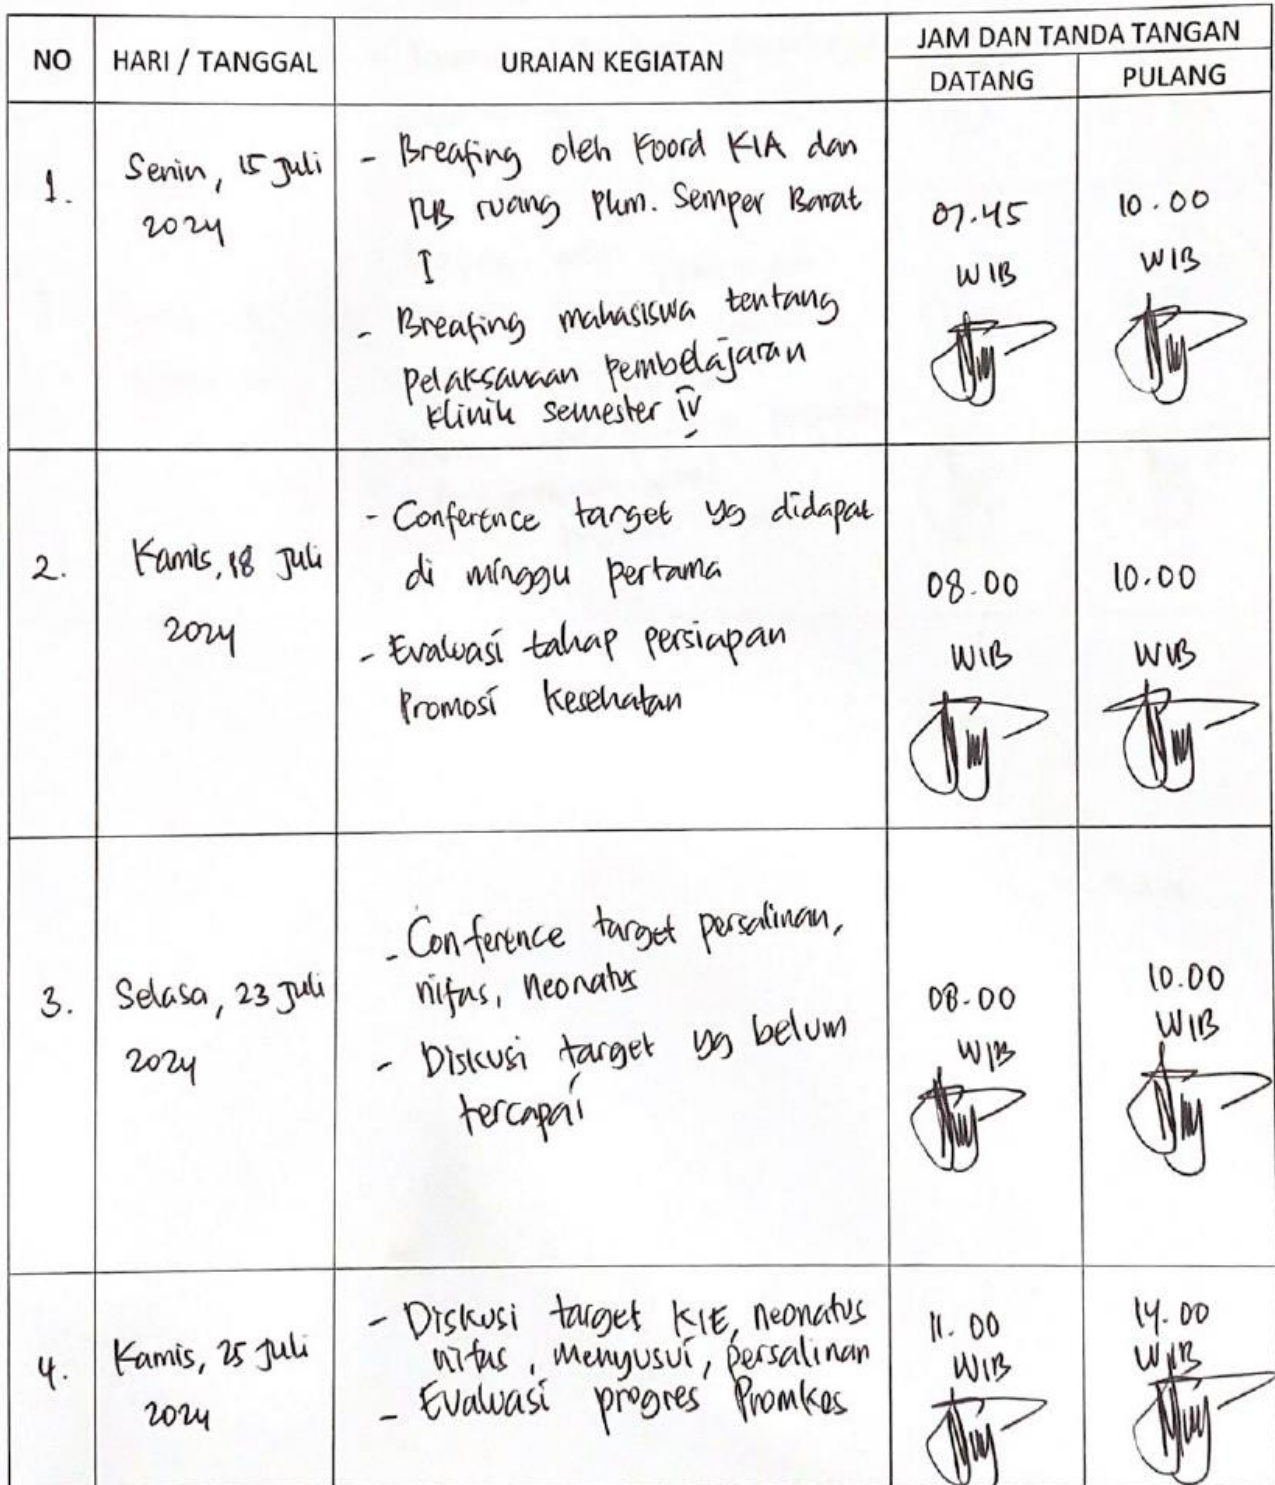 NO HARI / TANGGAL URAIAN KEGIATAN JAM DAN TANDA TANGAN
DATANG PULANG
1. Senin, 15 Juli 2024
- Breafing oleh Koord KIA dan
RB ruang Pkm. Semper Barat
I
- Breafing mahasiswa tentang
pelaksanaan pembelajaran
klinik semester IV
07.45 WIB
10.00 WIB
2. Kamis, 18 Juli 2024
- Conference target yg didapat
di minggu pertama
- Evaluasi tahap persiapan
Promosi Kesehatan
08.00 WIB
10.00 WIB
3. Selasa, 23 Juli 2024
- Conference target persalinan,
nifas, neonatus
- Diskusi target yg belum
tercapai
08.00 WIB
10.00 WIB
4. Kamis, 25 Juli 2024
- Diskusi target KIE, neonatus
nifas, menyusui, persalinan
- Evaluasi progres Promkes
11.00 WIB
14.00 WIB